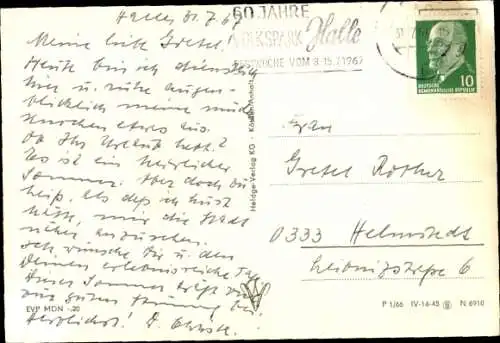 Halle, 31.7.67
Meine liebe Gretel,
Heute bin ich dienstlich
hier u. ruhe augen-
blicklich meine müden
Knochen etwas aus.
Ob Ihr Urlaub habt?
Es ist ein herrlicher
Sommer. Aber doch zu
heiß, als daß ich Lust
hätte, mir die Stadt
näher anzusehen.
Ich wünsche Dir u. den
Deinen erlebnisreiche Tage
Dieser Sommer trägt viel
zur guten Stimmung bei.
Herzlichst! D.
EVP MDN -.20
60 JAHRE
VOLKSPARK Halle
FESTWOCHE VOM 8.-15.7.1967
10
DEUTSCHE
DEMOKRATISCHE REPUBLIK
Heldge-Verlag KG · Köthen-Anhalt
Frau
Gretel Rother
0333 Helmstedt
Leibnizstraße 6
P 1/66 IV-14-45 N 6910